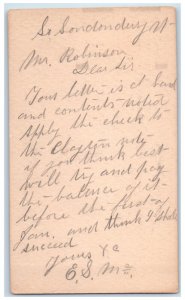 So Londonderry Vt
Mr. Robinson
Dear Sir
Your letter is at hand
and contents noted
apply the check to
the Clayton note
if you think best
will try and pay
the balance of it
before the first of
Jan, and think I shall
succeed
Yours
E. S.